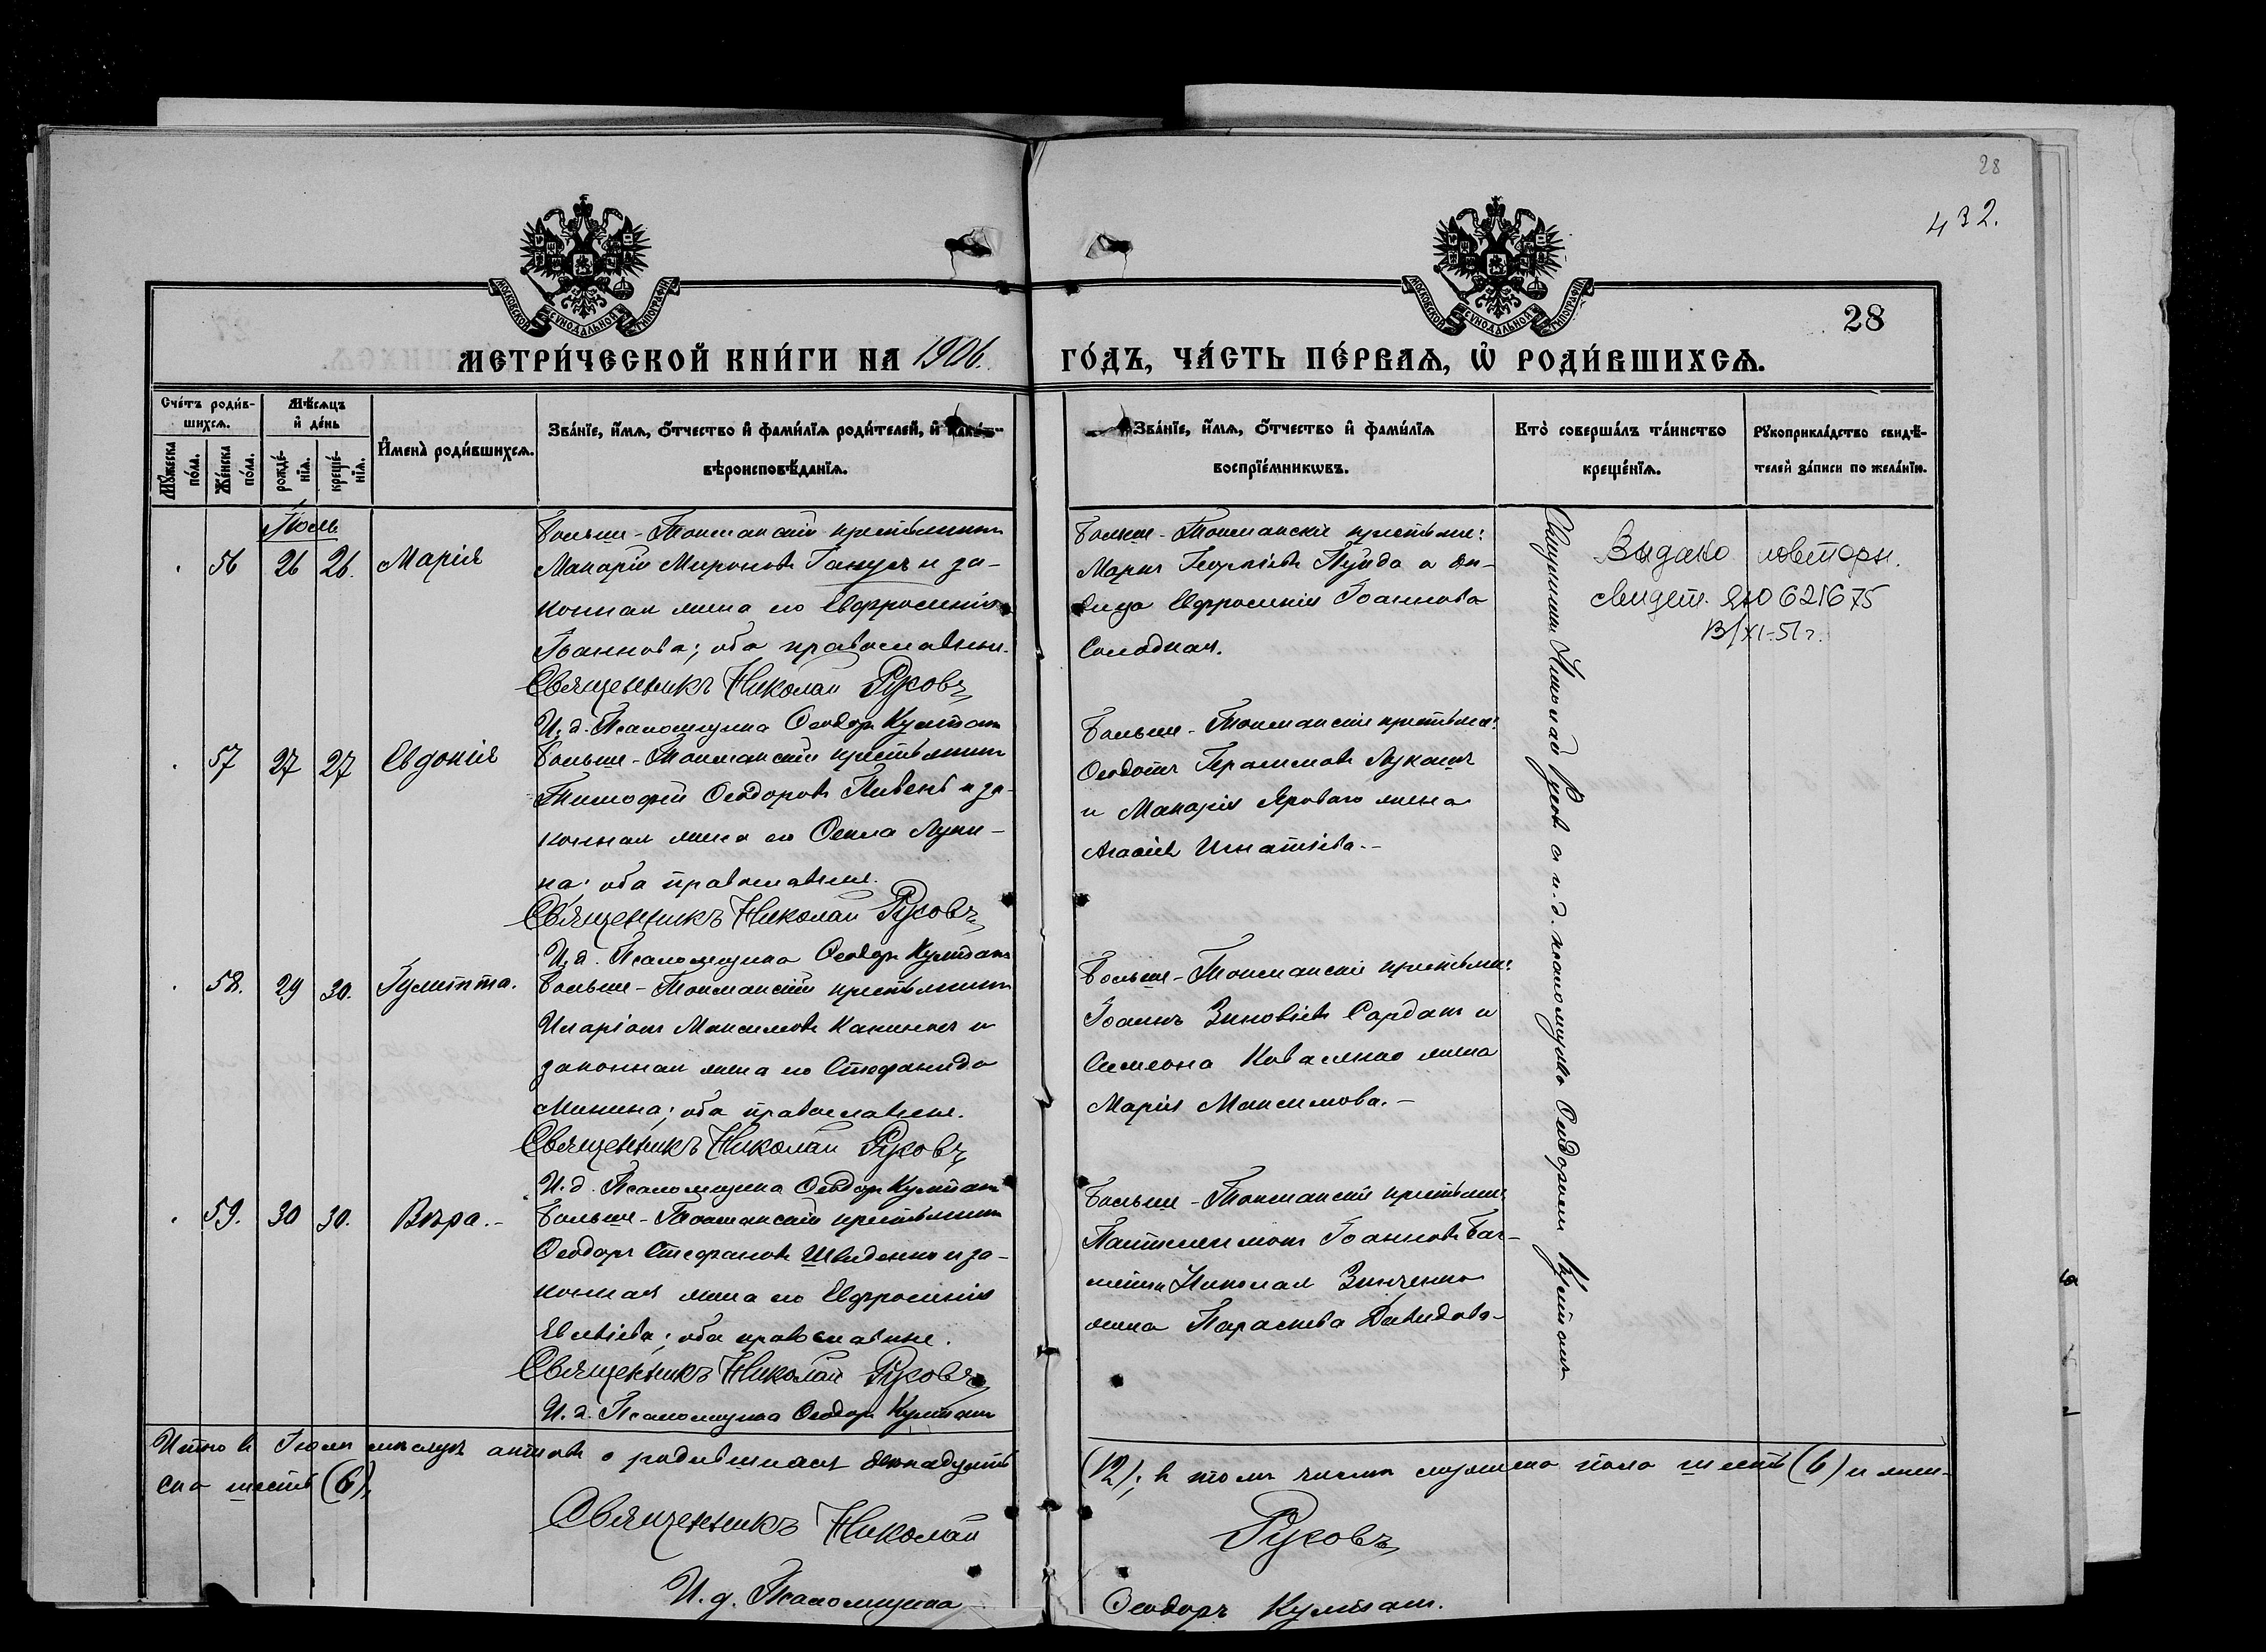 28
432.
МОСКОВСКОЙ СѴНОДАЛЬНОЙ ТИПОГРАФІИ
МОСКОВСКОЙ СѴНОДАЛЬНОЙ ТИПОГРАФІИ
28
МЕТРИ́ЧЕСКОЙ КНИ́ГИ НА 1906. ГО́ДЪ, ЧА́СТЬ ПЕ́РВАЯ, Ѽ РОДИ́ВШИХСЯ.
Сче́тъ роди́в-
шихся.
Мꙋ́жеска по́ла.
Же́нска по́ла.
Мѣ́сяцъ и҆ де́нь
рожде́-
нїя.
креще́-
нїя.
И҆мена̀ роди́вшихся.
Зва́нїе, и҆́мя, ѻ҆́тчество и҆ фами́лїя роди́телей, и҆
вѣроисповѣ́данїя.
Зва́нїе, и҆́мя, ѻ҆́тчество и҆ фами́лїя
воспрїе́мникѡвъ.
Кто̀ соверша́лъ та́инство
креще́нїя.
Рꙋкоприкла́дство свидѣ́-
телей за́писи по жела́нїю.
Іюль
56 26 26. Марія
Больше-Токмакскій крестьянинъ
Макарій Мироновъ Гануся и за-
конная жена его Евфросинія
Іоаннова; оба православные.
Священникъ Николай Русовъ
И. д. Псаломщика Ѳеодоръ Култашъ
Больше-Токмакскіе крестьяне:
Марья Георгіевъ Пуйда и дѣ-
вица Евфросинія Іоаннова
Солодкая.
Выдано повторн.
свидет. ЯЮ 621675
13/XI-51 г.
57 27 27 Евдокія
Больше-Токмакскій крестьянинъ
Тимофей Ѳеодоровъ Пивень и за-
конная жена его Ѳекла Луки-
на; оба православные.
Священникъ Николай Русовъ
И. д. Псаломщика Ѳеодоръ Култашъ
Больше-Токмакскіе крестьяне:
Ѳеодотъ Герасимовъ Лукашъ
и Макарія Ярового жена
Агафія Игнатіева.-
58. 29 30. Іулитта.
Больше-Токмакскій крестьянинъ
Иларіонъ Максимовъ и
законная жена его Стефанида
Минина; оба православные.
Священникъ Николай Русовъ
И. д. Псаломщика Ѳеодоръ Култашъ
Больше-Токмакскіе крестьяне:
Іоаннъ Зиновіевъ Сардакъ и
Симеона Коваленко жена
Марія Максимова.-
59. 30 30. Вѣра.-
Больше-Токмакскій крестьянинъ
Ѳеодоръ Стефановъ Швиденко и за-
конная жена его Евфросинія
Евсевіева; оба православные.
Священникъ Николай Русовъ
И. д. Псаломщика Ѳеодоръ Култашъ
Больше-Токмакскіе крестьяне:
Пантелеимонъ Іоанновъ
Николая Зинченко
жена Параскева Давидова-
Священникъ Николай Русовъ съ и. д. псаломщика Ѳеодоромъ Култашемъ
Итого въ Іюлѣ мѣсяцѣ актовъ о родившихся двѣнадцать (12); въ томъ числѣ мужеска пола шесть (6) и жен-
ска шесть (6),
Священникъ Николай Русовъ
И. д. Псаломщика Ѳеодоръ Култашъ.